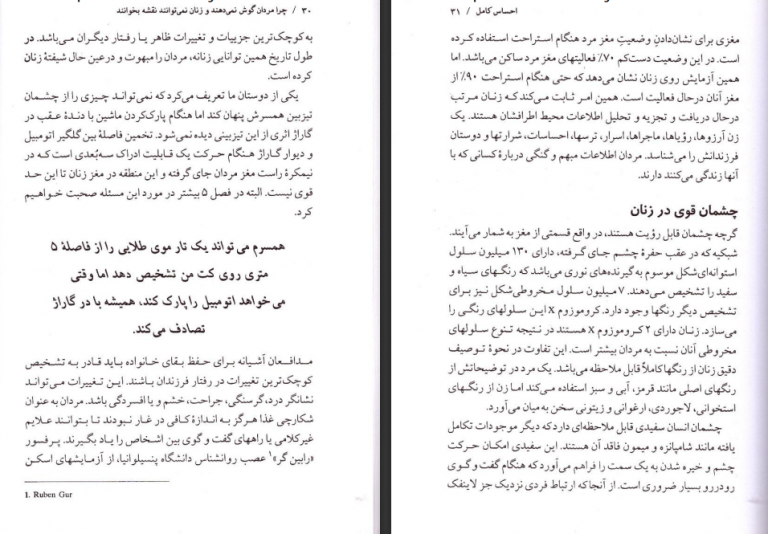 ۳۰ / چرا مردان گوش نمی‌دهند و زنان نمی‌توانند نقشه بخوانند
به کوچک‌ترین جزییات و تغییرات ظاهر یا رفتار دیگران می‌باشد. در
طول تاریخ همین توانایی زنانه، مردان را مبهوت و درعین حال شیفتهٔ زنان
کرده است.
یکی از دوستان ما تعریف می‌کرد که نمی‌تواند چیزی را از چشمان
تیزبین همسرش پنهان کند اما هنگام پارک‌کردن ماشین با دندهٔ عقب در
گاراژ اثری از این تیزبینی دیده نمی‌شود. تخمین فاصلهٔ بین گلگیر اتومبیل
و دیوار گاراژ هنگام حرکت یک قابلیت ادراک سه‌بُعدی است که در
نیمکرهٔ راست مغز مردان جای گرفته و این منطقه در مغز زنان تا این حد
قوی نیست. البته در فصل ۵ بیشتر در مورد این مسئله صحبت خواهیم
کرد.
همسرم می‌تواند یک تار موی طلایی را از فاصلهٔ ۵
متری روی کت من تشخیص دهد اما وقتی
می‌خواهد اتومبیل را پارک کند، همیشه با در گاراژ
تصادف می‌کند.
مدافعان آشیانه برای حفظ بقای خانواده باید قادر به تشخیص
کوچک‌ترین تغییرات در رفتار فرزندان باشند. این تغییرات می‌تواند
نشانگر درد، گرسنگی، جراحت، خشم و یا افسردگی باشد. مردان به عنوان
شکارچی غذا هرگز به اندازهٔ کافی در غار نبودند تا بتوانند علایم
غیرکلامی یا راههای گفت و گوی بین اشخاص را یاد بگیرند. پرفسور
«رابین گر»۱ عصب روانشناس دانشگاه پنسیلوانیا، از آزمایشهای اسکن
1. Ruben Gur
احساس کامل / ۳۱
مغزی برای نشان‌دادن وضعیتِ مغز مرد هنگام استراحت استفاده کرده
است. در این وضعیت دست‌کم ۷۰٪ فعالیتهای مغز مرد ساکن می‌باشد. اما
همین آزمایش روی زنان نشان می‌دهد که حتی هنگام استراحت ۹۰٪ از
مغز آنان درحال فعالیت است. همین امر ثابت می‌کند که زنان مرتب
درحال دریافت و تجزیه و تحلیل اطلاعات محیط اطرافشان هستند. یک
زن آرزوها، رؤیاها، ماجراها، اسرار، ترسها، احساسات، شرارتها و دوستان
فرزندانش را می‌شناسد. مردان اطلاعات مبهم و گنگی دربارهٔ کسانی که با
آنها زندگی می‌کنند دارند.
چشمان قوی در زنان
گرچه چشمان قابل رؤیت هستند، در واقع قسمتی از مغز به شمار می‌آیند.
شبکیه که در عقب حفرهٔ چشم جای گرفته، دارای ۱۳۰ میلیون سلول
استوانه‌ای‌شکل موسوم به گیرنده‌های نوری می‌باشد که رنگهای سیاه و
سفید را تشخیص می‌دهند. ۷ میلیون سلول مخروطی‌شکل نیز برای
تشخیص دیگر رنگها وجود دارد. کروموزوم x این سلولهای رنگی را
می‌سازد. زنان دارای ۲ کروموزوم x هستند در نتیجه تنوع سلولهای
مخروطی آنان نسبت به مردان بیشتر است. این تفاوت در نحوهٔ توصیف
دقیق زنان از رنگها کاملاً قابل ملاحظه می‌باشد. یک مرد در توضیحاتش از
رنگهای اصلی مانند قرمز، آبی و سبز استفاده می‌کند اما زن از رنگهای
استخوانی، لاجوردی، ارغوانی و زیتونی سخن به میان می‌آورد.
چشمان انسان سفیدی قابل ملاحظه‌ای دارد که دیگر موجودات تکامل
یافته مانند شامپانزه و میمون فاقد آن هستند. این سفیدی امکان حرکت
چشم و خیره شدن به یک سمت را فراهم می‌آورد که هنگام گفت و گوی
رودررو بسیار ضروری است. از آنجا که ارتباط فردی نزدیک جز لاینفک